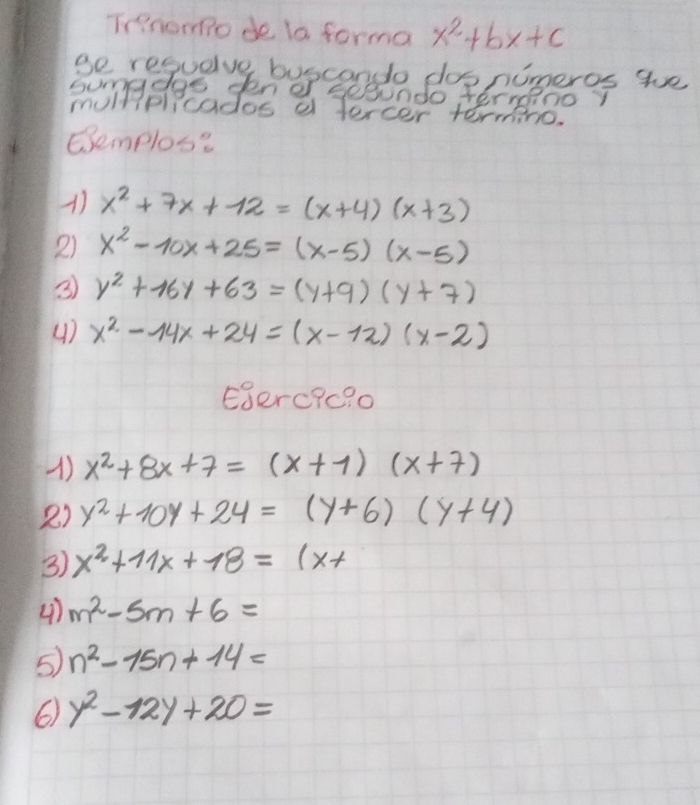 Trinomio de la forma x²+bx+c
se resuelve buscando dos números que
sumados den el segundo término y
multiplicados el tercer término.
Ejemplos:
1) x² + 7x + 12 = (x+4) (x+3)
2) x² - 10x + 25 = (x-5) (x-5)
3) y² + 16y + 63 = (y+9) (y+7)
4) x² - 14x + 24 = (x-12) (x-2)
Ejercicio
1) x² + 8x + 7 = (x+1) (x+7)
2) y² + 10y + 24 = (y+6) (y+4)
3) x² + 11x + 18 = (x+
4) m² - 5m + 6 =
5) n² - 15n + 14 =
6) y² - 12y + 20 =